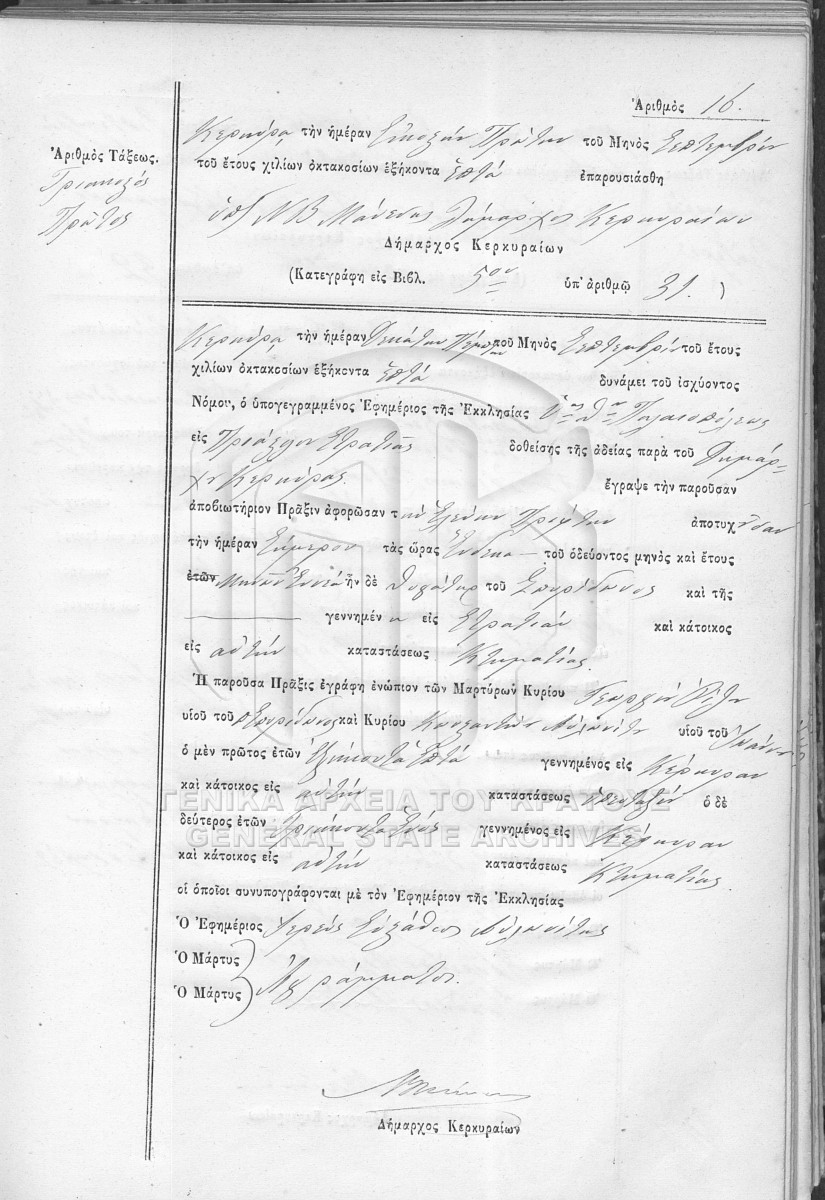 Ἀριθμὸς 16.
Ἀριθμὸς Τάξεως.
Τριακοστὸς
Πρῶτος
Κερκύρα τὴν ἡμέραν Εἰκοστὴν Πρώτην τοῦ Μηνὸς Σεπτεμβρίου
τοῦ ἔτους χιλίων ὀκτακοσίων ἑξήκοντα ἑπτά ἐπαρουσιάσθη
Ν Β Μάνεσης Δήμαρχος Κερκυραίων
Δήμαρχος Κερκυραίων
(Κατεγράφη εἰς Βιβλ. 5ον ὑπ' ἀριθμῷ 31.)
Κερκύρα τὴν ἡμέραν Δεκάτην Πέμπτην τοῦ Μηνὸς Σεπτεμβρίου τοῦ ἔτους
χιλίων ὀκτακοσίων ἑξήκοντα ἑπτά δυνάμει τοῦ ἰσχύοντος
Νόμου, ὁ ὑπογεγραμμένος Ἐφημέριος τῆς Ἐκκλησίας Παλαιοπόλεως
εἰς Προάστειον Στρατιᾶς δοθείσης τῆς ἀδείας παρὰ τοῦ Δημάρ-
χου Κερκύρας. ἔγραψε τὴν παροῦσαν
ἀποβιωτήριον Πρᾶξιν ἀφορῶσαν τὴν Ἑλένην Πρίφτη ἀποτυχοῦσαν
τὴν ἡμέραν Σήμερον τὰς ὥρας Ἕνδεκα τοῦ ὁδεύοντος μηνὸς καὶ ἔτους
ἐτῶν Μηνῶν Ἐννέα ἦν δὲ θυγάτηρ τοῦ Σπυρίδωνος καὶ τῆς
γεννημένη εἰς Στρατιάν καὶ κάτοικος
εἰς αὐτήν καταστάσεως Κτηματίας.
Ἡ παροῦσα Πρᾶξις ἐγράφη ἐνώπιον τῶν Μαρτύρων Κυρίου Γεωργίου
υἱοῦ τοῦ Σπυρίδωνος καὶ Κυρίου Κωνσταντίνου Αὐλωνίτη υἱοῦ τοῦ Ἰωάννου
ὁ μὲν πρῶτος ἐτῶν Ἑξήκοντα Ἑπτά γεννημένος εἰς Κέρκυραν
καὶ κάτοικος εἰς αὐτήν καταστάσεως ὁ δὲ
δεύτερος ἐτῶν Τριάκοντα Ἑνός γεννημένος εἰς Κέρκυραν
καὶ κάτοικος εἰς αὐτήν καταστάσεως Κτηματίας.
οἱ ὁποῖοι συνυπογράφονται μὲ τὸν Ἐφημέριον τῆς Ἐκκλησίας
Ὁ Ἐφημέριος Ἱερεὺς Εὐστάθιος Αὐλωνίτης
Ὁ Μάρτυς
Ὁ Μάρτυς Ἀγράμματοι.
Δήμαρχος Κερκυραίων
ΓΕΝΙΚΑ ΑΡΧΕΙΑ ΤΟΥ ΚΡΑΤΟΥΣ
GENERAL STATE ARCHIVES